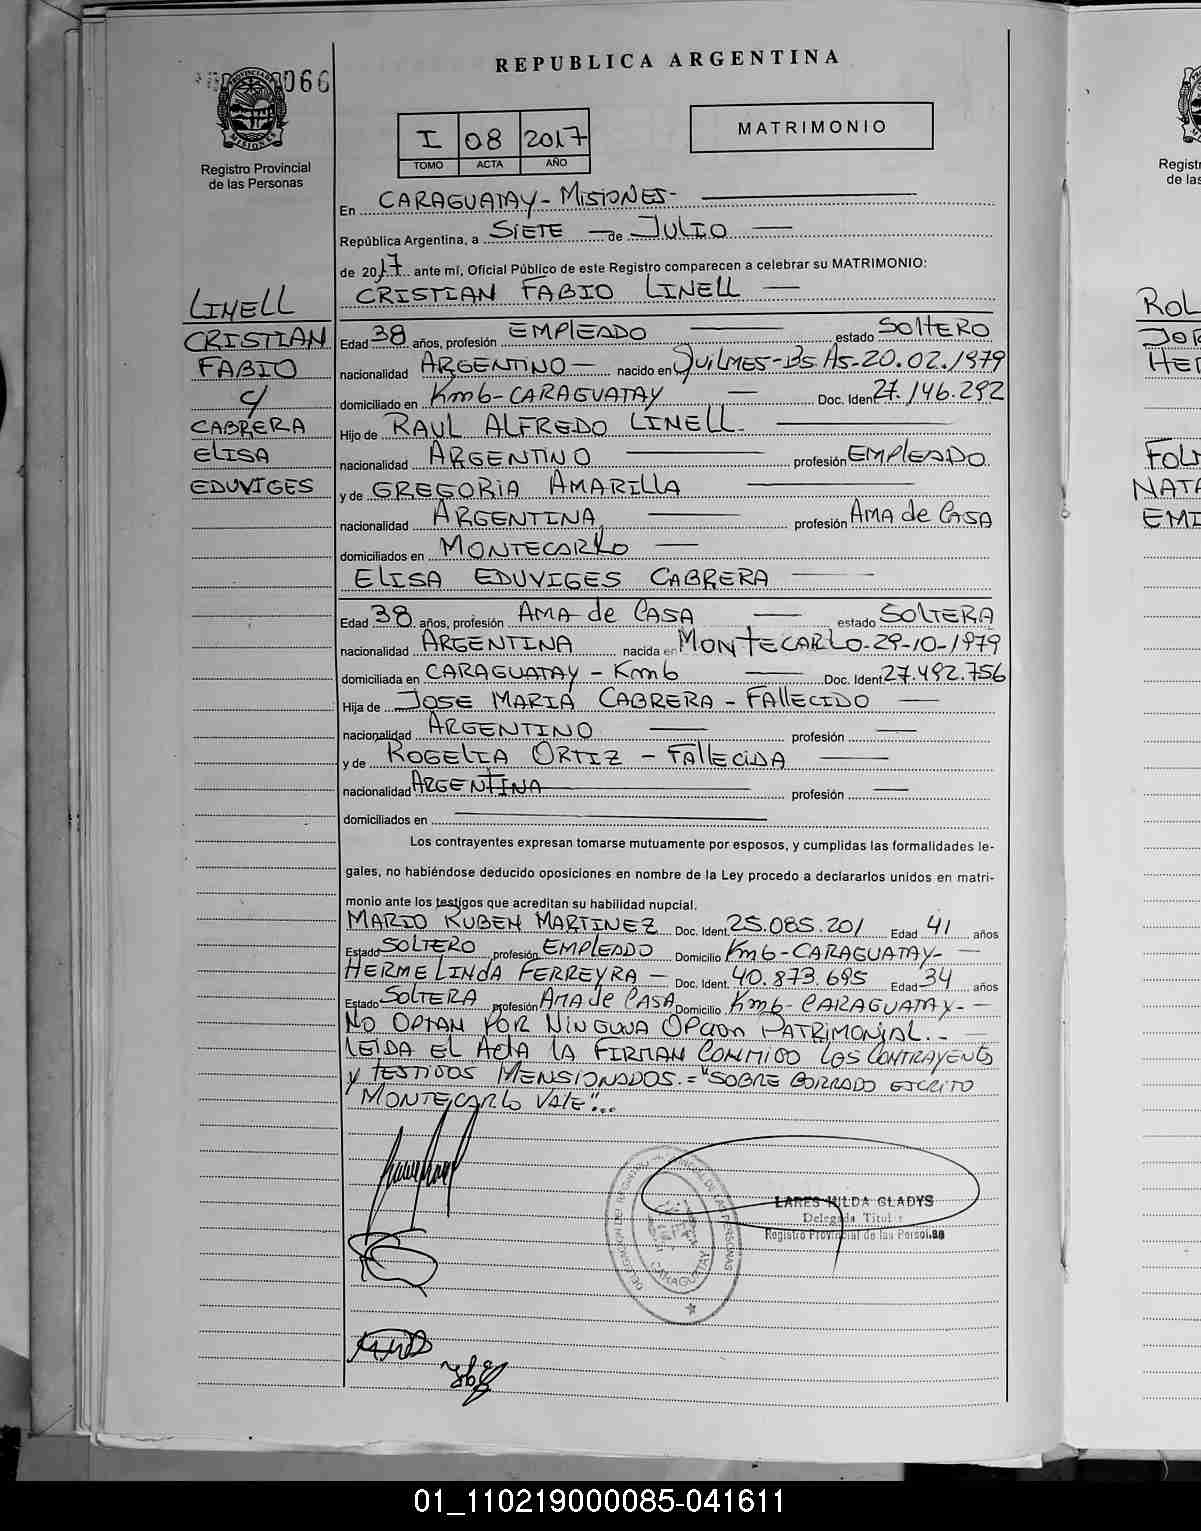 REPUBLICA ARGENTINA
066
PROVINCIA DE
MISIONES
Registro Provincial
de las Personas
I 08 2017
TOMO ACTA AÑO
MATRIMONIO
En CARAGUATAY - MISIONES-
República Argentina, a SIETE de JULIO
de 2017 ante mí, Oficial Público de este Registro comparecen a celebrar su MATRIMONIO:
LINELL
CRISTIAN
FABIO
c/
CABRERA
ELISA
EDUVIGES
CRISTIAN FABIO LINELL
Edad 38 años, profesión EMPLEADO estado SOLTERO
nacionalidad ARGENTINO nacido en QUILMES-Bs As-20.02.1979
domiciliado en Km6-CARAGUATAY Doc. Ident 27.146.292
Hijo de RAUL ALFREDO LINELL
nacionalidad ARGENTINO profesión EMPLEADO
y de GREGORIA AMARILLA
nacionalidad ARGENTINA profesión AMA de CASA
domiciliados en MONTECARLO
ELISA EDUVIGES CABRERA
Edad 38 años, profesión AMA de CASA estado SOLTERA
nacionalidad ARGENTINA nacida en MONTECARLO-29-10-1979
domiciliada en CARAGUATAY - Km6 Doc. Ident 27.492.756
Hija de JOSE MARIA CABRERA - FALLECIDO
nacionalidad ARGENTINO profesión
y de ROGELIA ORTIZ - FALLECIDA
nacionalidad ARGENTINA profesión
domiciliados en
Los contrayentes expresan tomarse mutuamente por esposos, y cumplidas las formalidades le-
gales, no habiéndose deducido oposiciones en nombre de la Ley procedo a declararlos unidos en matri-
monio ante los testigos que acreditan su habilidad nupcial.
MARIO RUBEN MARTINEZ Doc. Ident. 25.085.201 Edad 41 años
Estado SOLTERO profesión EMPLEADO Domicilio Km6-CARAGUATAY-
HERMELINDA FERREYRA - Doc. Ident. 40.873.695 Edad 34 años
Estado SOLTERA profesión AMA de CASA Domicilio Km6- CARAGUATAY-
NO OPTAN POR NINGUNA OPCION PATRIMONIAL.-
LEIDA EL ACTA LA FIRMAN CONMIGO LOS CONTRAYENTES
Y TESTIGOS MENSIONADOS.="SOBRE BORRADO ESCRITO
MONTECARLO VALE"...
LARES HILDA GLADYS
Delegada Titular
Registro Provincial de las Personas
CARAGUATAY
Registr
de las
ROL
JOR
HER
NATA
EMI
01_110219000085-041611